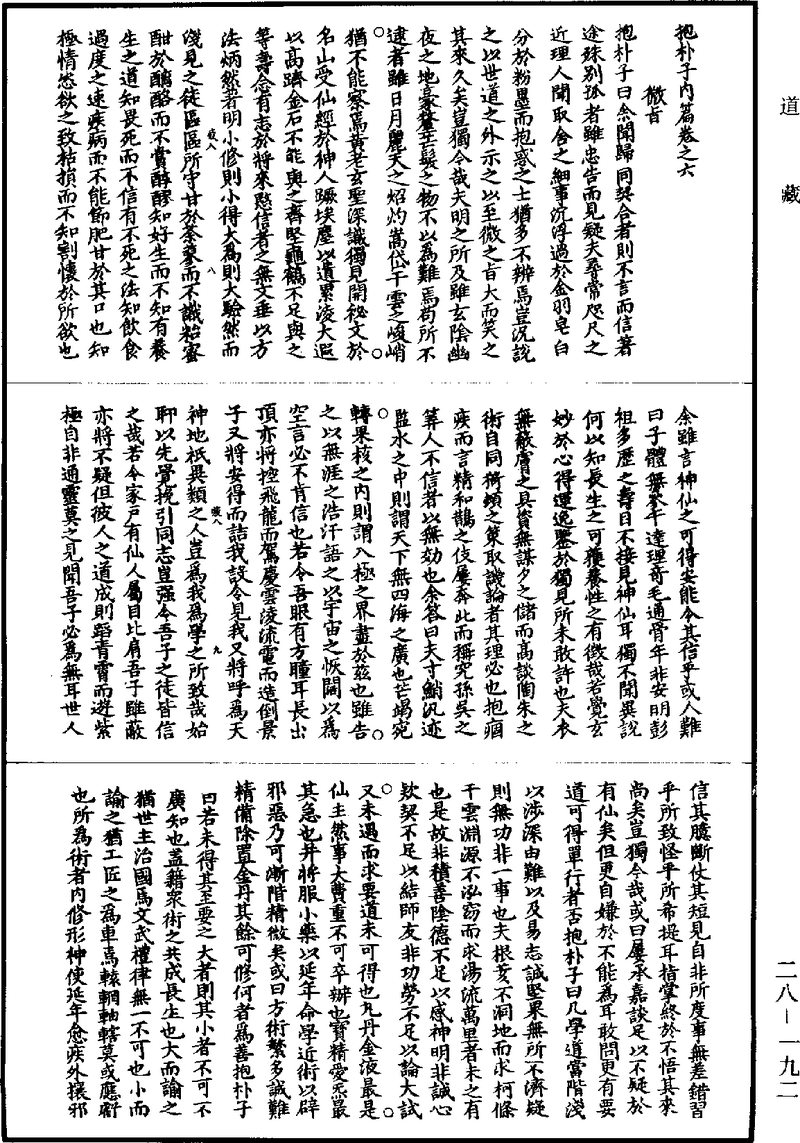 道藏
抱朴子內篇卷之六
微旨
抱朴子曰余聞歸同契合者則不言而信著
途殊别務者雖忠告而見疑夫尋常咫尺之
近理人閒取舍之細事沉浮過於金羽皂白
分於粉墨而抱惑之士猶多不辨焉豈況說
之以世道之外示之以至微之旨大而笑之
其來久矣豈獨今哉夫明之所及雖玄陰幽
夜之地豪釐芒髮之物不以為難焉苟所不
逮者雖日月麗天之炤灼嵩岱干雲之峻峭
猶不能察焉黃老玄聖深識獨見開祕文於
名山受仙經於神人蹶埃塵以遺累凌大遐
以高躋金石不能與之齊堅龜鶴不足與之
等壽念有志於將來愍信者之無文垂以方
法炳然著明小修則小得大為則大驗然而
八
淺見之徒區區所守甘於荼蓼而不識粘蜜
酣於醨酪而不賞醇醪知好生而不知有養
生之道知畏死而不信有不死之法知飲食
過度之速疾病而不能節肥甘於其口也知
極情恣欲之致枯損而不知割懷於所欲也
余雖言神仙之可得安能令其信乎或人難
曰子體無參午達理奇毛通骨年非安明彭
祖多歷之壽目不接見神仙耳獨不聞異說
何以知長生之可獲養性之有徵哉若覺玄
妙於心得運逸鑒於獨見所未敢許也夫衣
無蔽膚之具資無謀夕之儲而高談陶朱之
術自同猗頓之策取譏論者其理必也抱痼
疾而言精和鵲之伎屢奔北而稱究孫吳之
筭人不信者以無効也余答曰夫寸鮹汎迹
濫水之中則謂天下無四海之廣也芒蝎宛
轉果核之內則謂八極之界盡於茲也雖告
之以無涯之浩汗語之以宇宙之恢闊以為
空言必不肯信也若令吾眼有方瞳耳長出
頂亦將控飛龍而駕慶雲凌流電而造倒景
子又將安得而詰我設令見我又將呼為天
九
神地祇異類之人豈為我為學之所致哉始
耶以先覺挽引同志豈强令吾子之徒皆信
之哉若令家戶有仙人屬目比肩吾子雖蔽
亦將不疑但彼人之道成則蹈青霄而遊紫
極自非通靈莫之見聞吾子必為無耳世人
信其臆斷仗其短見自非所度事無差錯習
乎所致怪乎所希提耳指掌終於不悟其來
尚矣豈獨今哉或曰屢承嘉談足以不疑於
有仙矣但更自嫌於不能為耳敢問更有要
道可得單行者否抱朴子曰凡學道當階淺
以涉深由難以及易志誠堅果無所不濟疑
則無功非一事也夫根荄不洞地而求柯條
干雲淵源不泓窈而求湯流萬里者未之有
也是故非積善陰德不足以感神明非誠心
欵契不足以結師友非功勞不足以論大試
又未遇而求要道未可得也九丹金液最是
仙主然事大費重不可卒辦也寶精愛炁最
其急也并將服小藥以延年命學近術以辟
邪惡乃可漸階精微矣或曰方術繁多誠難
精備除置金丹其餘可修何者為善抱朴子
曰若未得其至要之大者則其小者不可不
廣知也蓋籍衆術之共成長生也大而諭之
猶世主治國焉文武禮律無一不可也小而
諭之猶工匠之為車焉轅輞軸轄莫或應虧
也所為術者內修形神使延年愈疾外攘邪
二八－一九二